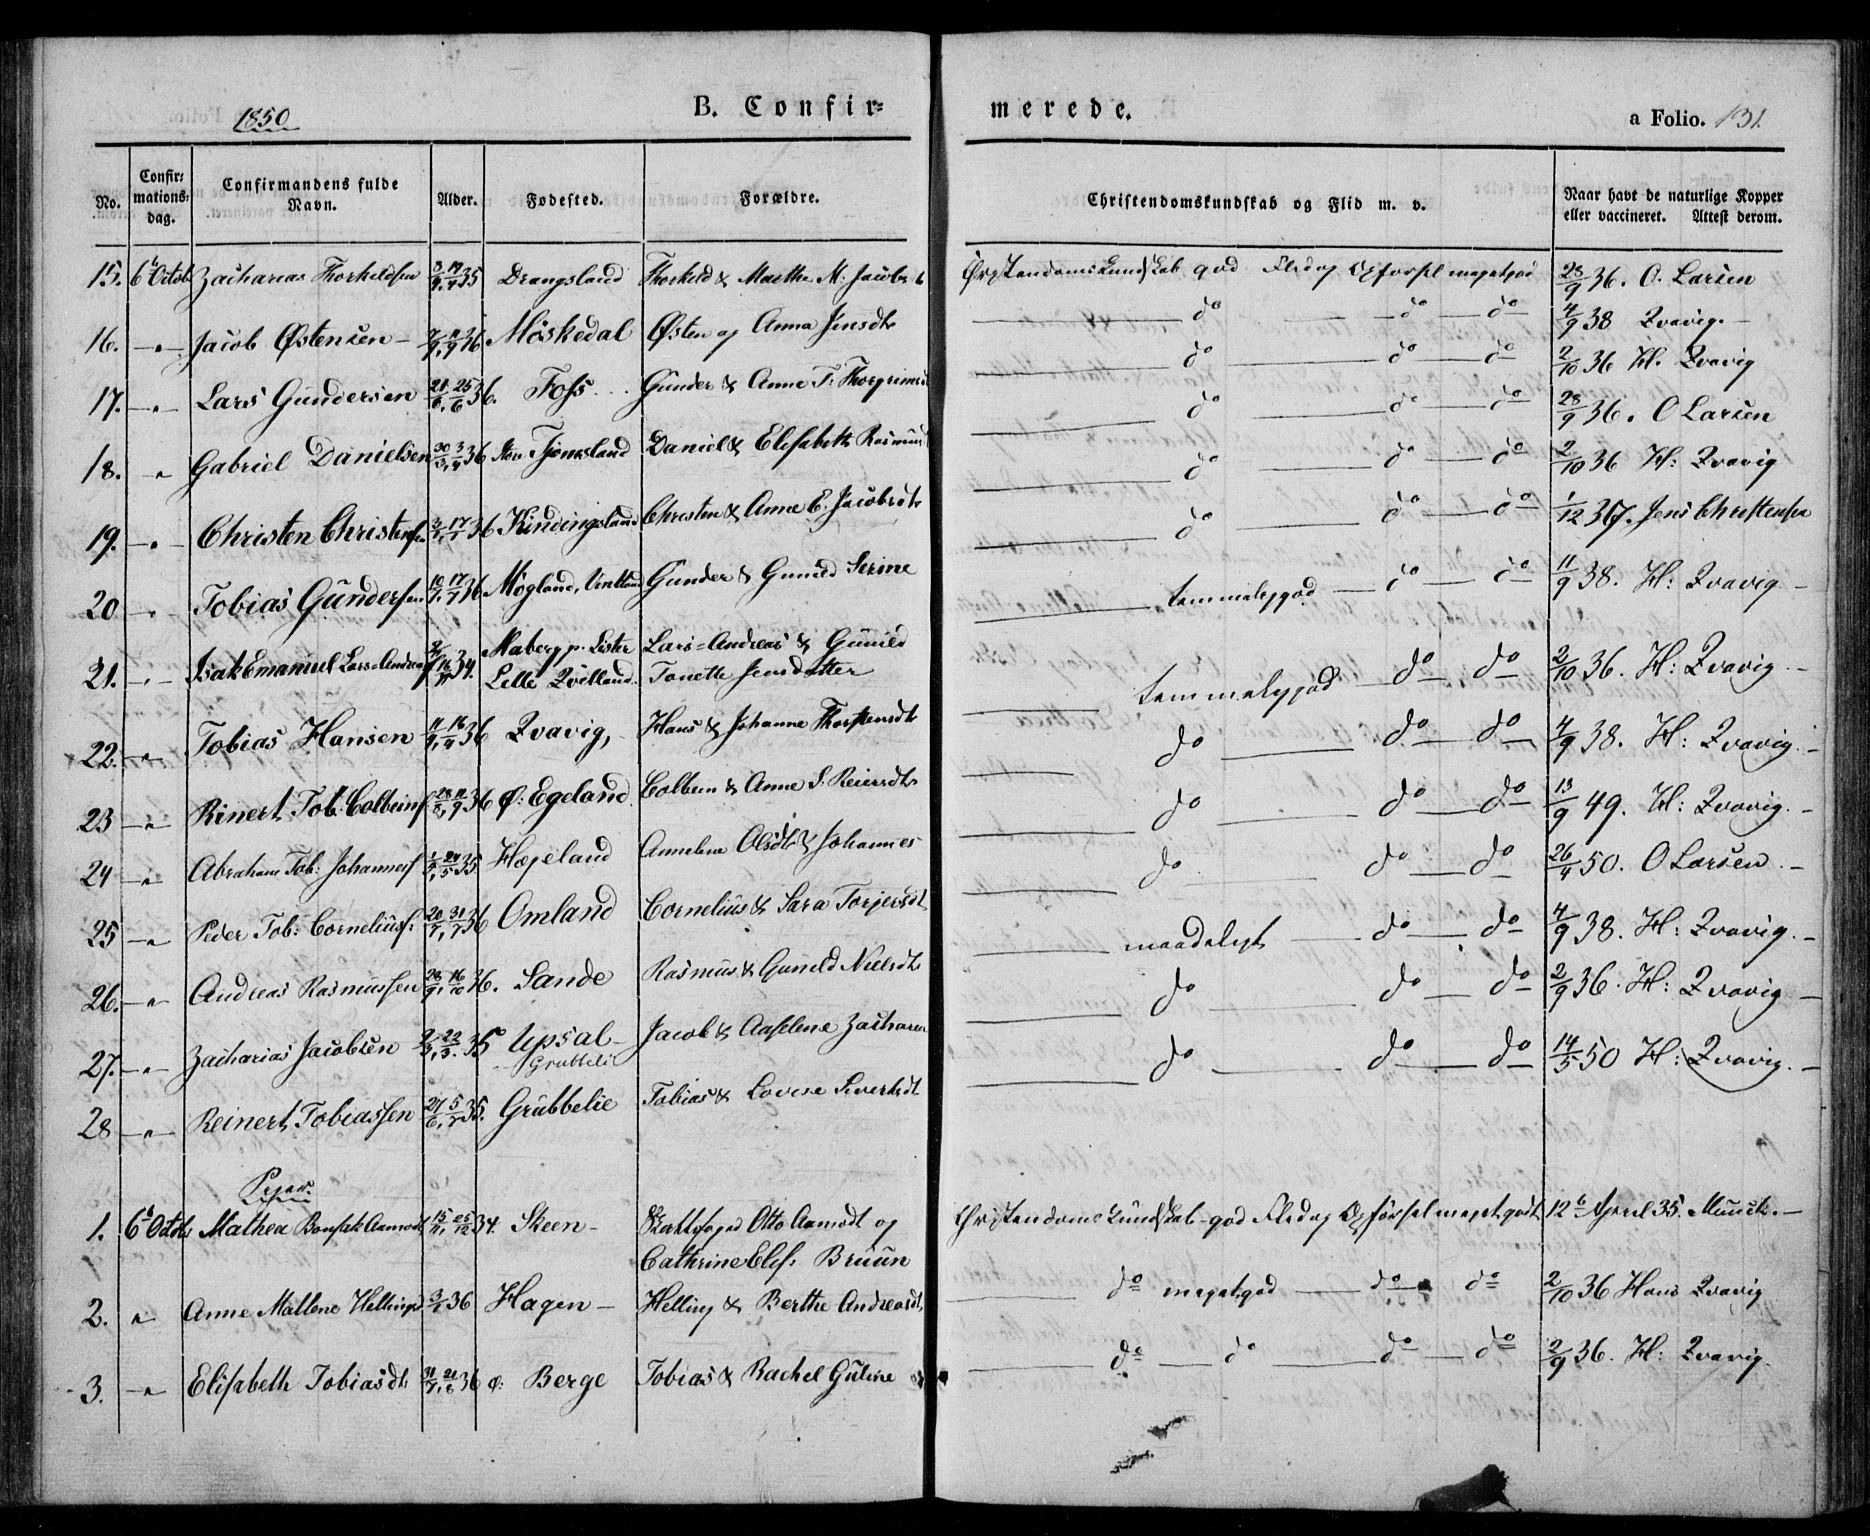 1850
B. Confir=
merede.
a Folio. 131.
No. Confir=mations=dag. Confirmandens fulde Navn. Alder. Fødested. Forældre. Christendomskundskab og Flid m. v. Naar havt de naturlige Kopper eller vaccineret. Attest derom.
15. 6 Octob Zacharias Thorkildsen 35 Drangsland Thorkild & Marthe M. Jacobs Christendoms Kundskab god Flid og Opførsel meget god 28/9 36. O. Larsen
16. -"- Jacob Østensen 36 Møskedal Østen og Anna Jensdt do do do 4/9 38 Qvavig.
17. -"- Lars Gundersen 21/6, 25/6 36. Foss Gunder & Anne T. Thorgrimsd do do do 2/10 36 H. Qvavig
18. " Gabriel Danielsen 30/3, 3/4 36 Tjomsland Daniel & Elisabeth Rasmus do do do 28/9 36. O Larsen
19. -"- Christen Christensen 36 Kindingsland Christen & Anne E. Jacobsdt do do do 2/10 36 H: Qvavig
20 " Tobias Gundersen 10/7, 17/7 36 Møgland, Gunder & Gunild Serine do do do 1/12 37. Jens Christensen
21. -"- Isak Emanuel Lars=Andreas 34. Maberg p. Lister Lars=Andreas & Gunild temmelig god do do 11/9 38. H: Qvavig
Lille Qvitland. Tonette Jensdatter
22. -"- Tobias Hansen 36 Qvavig, Hans & Johanne Thorstensdt temmelig god do do 2/10 36. H: Qvavig
23 -"- Rinert Tob: Colbeins. 36 Ø: Egeland Colbein & Anne S. Reiersdt do do do 4/9 38. H: Qvavig.
24 -"- Abraham Tob: Johannes. 35 Hægeland Annelene Olsdt & Johannes do do do 13/9 49. H: Qvavig.
25 -"- Peder Tob: Cornelius: 20/7, 31/7 36 Omland Cornelius & Sara Torjersdt do do do 26/4 50. O Larsen.
26. -"- Andreas Rasmussen 28/9, 16/10 36. Sande Rasmus & Gunild Nielsdt maadeligt do do 4/9 38. H: Qvavig.
27. -"- Zacharias Jacobsen 35 Upsal Jacob & Aaselene Zacharia do do do 2/9 36. H: Qvavig
Grubbeli
28 -"- Reinert Tobiassen 27/6, 5/7 35. Grubbelie Tobias & Lovise Sivertsdt do do do 14/5 50 H: Qvavig.
Piger.
1. 6 Octob Mathea Aamodt 34. Skeen Otto Aamodt og Christendoms Kundskab god Flid og Opførsel meget godt 12 April 35. Munch.
Cathrine Elis: Bruun
2. " Anne Mallene Hellingsd 36 Hagen Helling & Berthe Andreasdt do meget god do do 2/10 36 Hans Qvavig
3. -"- Elisabeth Tobiasdt. 36 ø: Berge Tobias & Rachel Guline do do do do 2/9 36. H: Qvavig.